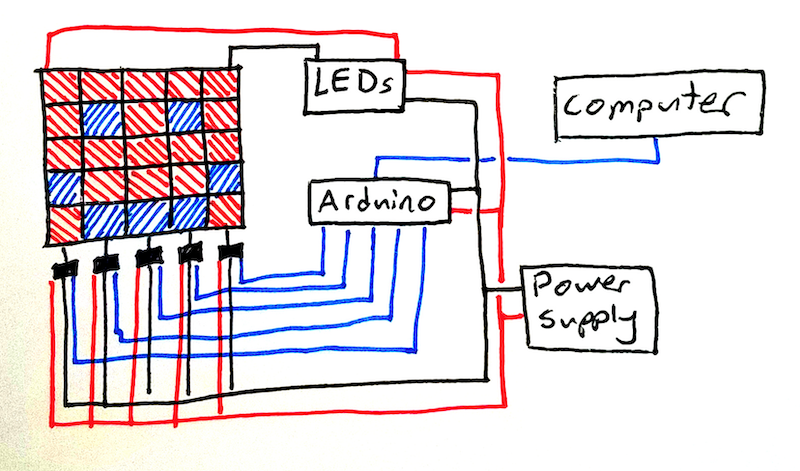 LEDs
computer
Arduino
Power
supply